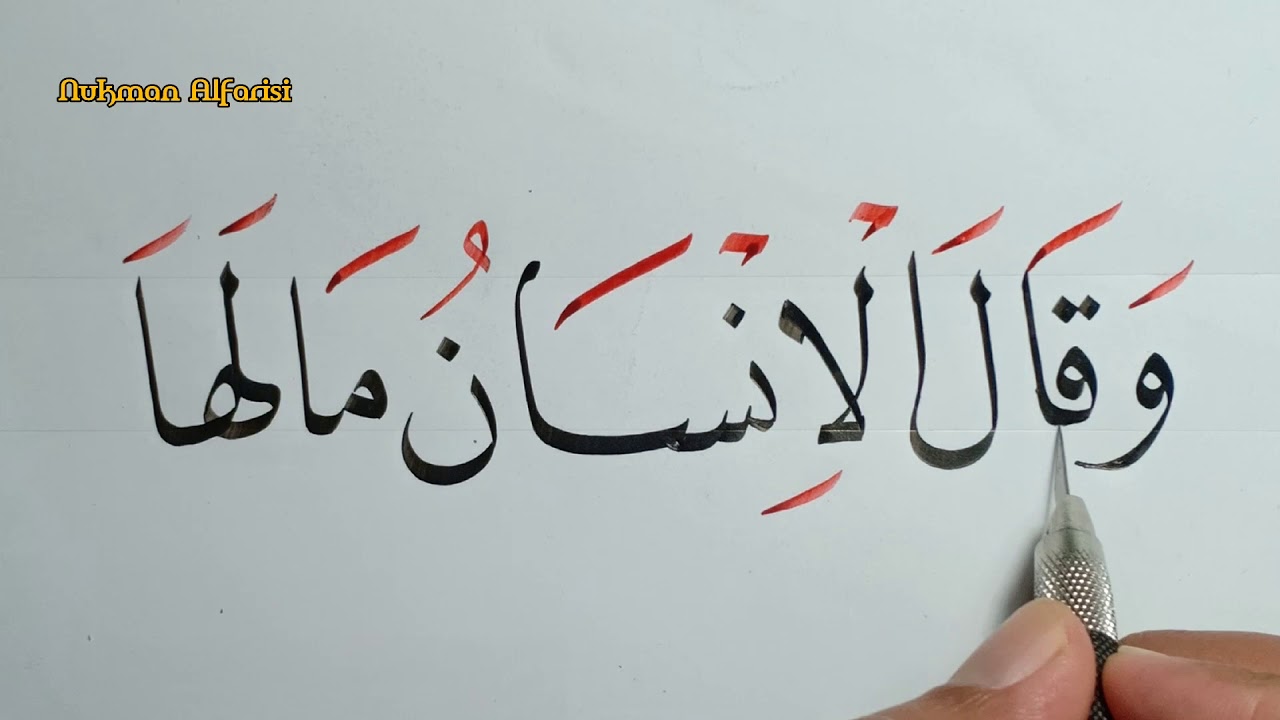 Nukman Alfarisi
وَقَالَ الْاِنْسَانُ مَالَهَا